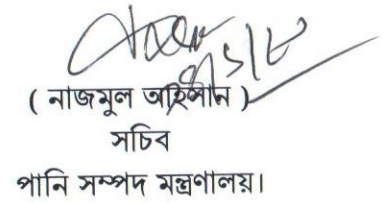 ( নাজমুল আহসান )
সচিব
পানি সম্পদ মন্ত্রণালয়।